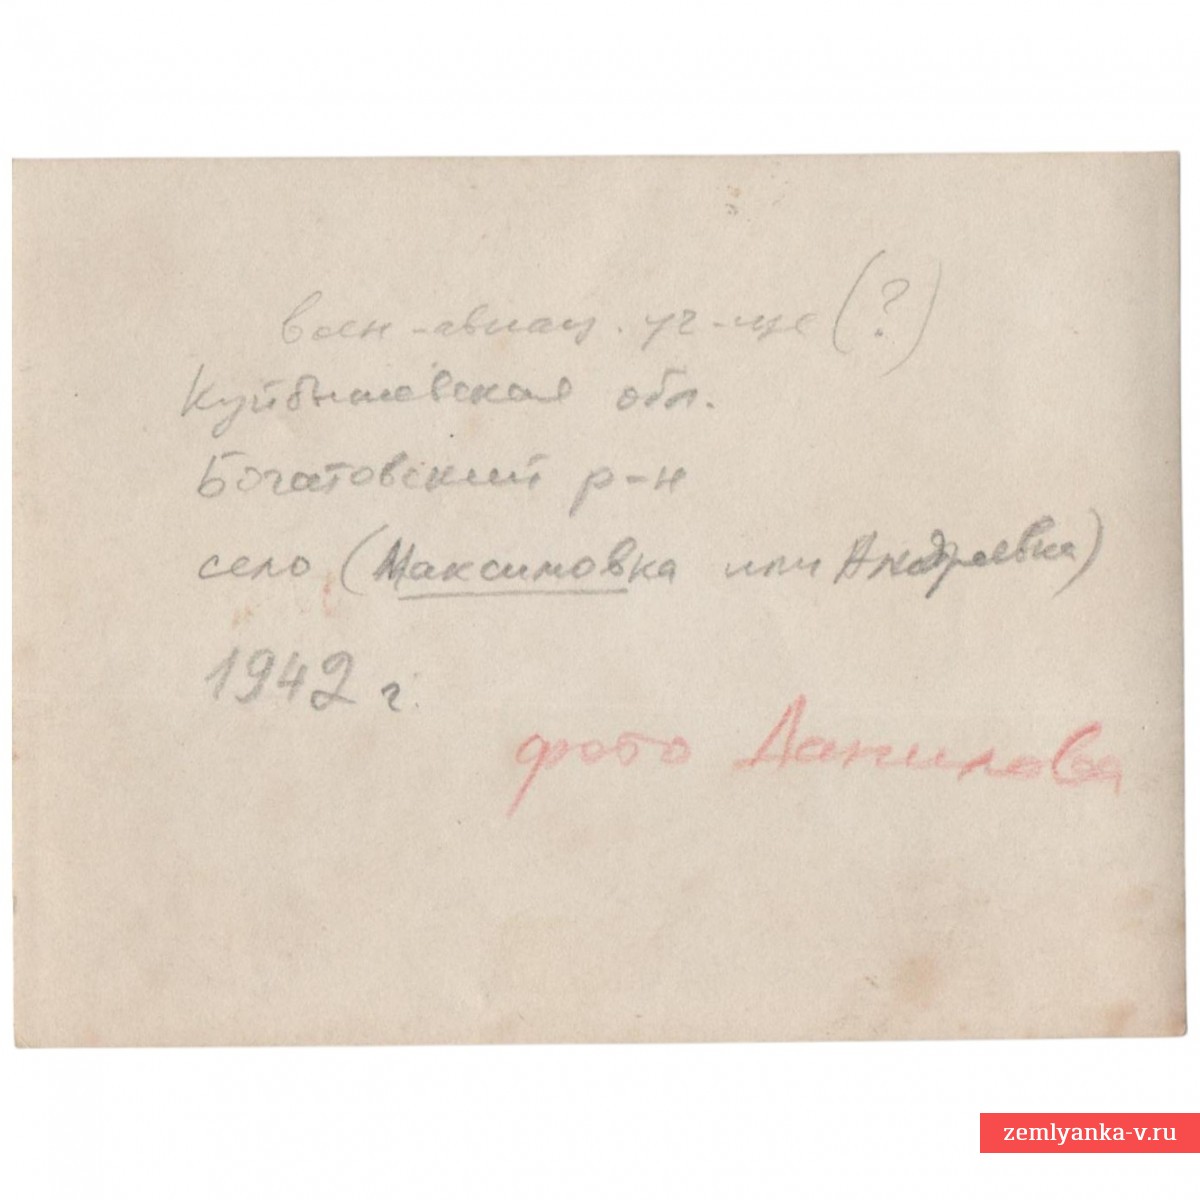 воен-авиац. уч-ще (?)
Куйбышевская обл.
Богатовский р-н
село (Максимовка или Андреевка)
1942 г.
фото Данилова
zemlyanka-v.ru